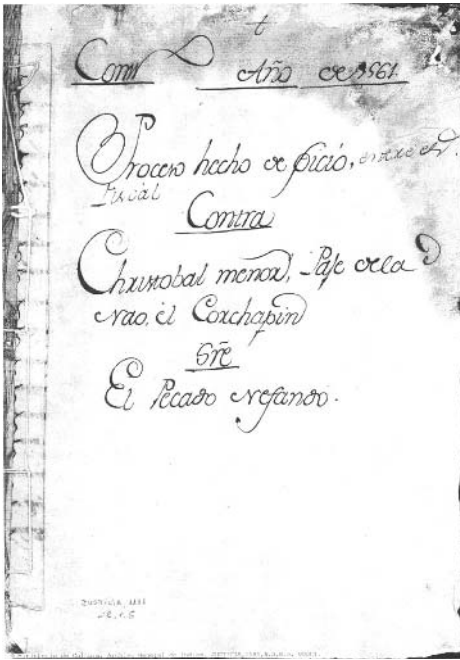 †
Conn Año de 1561.
Proceso hecho de oficio, entre el S.
Fiscal
Contra
Christobal menor, Paje de la
Nao, el Corchapin
Sre
El Pecado Nefando.
JUSTICIA, 1181